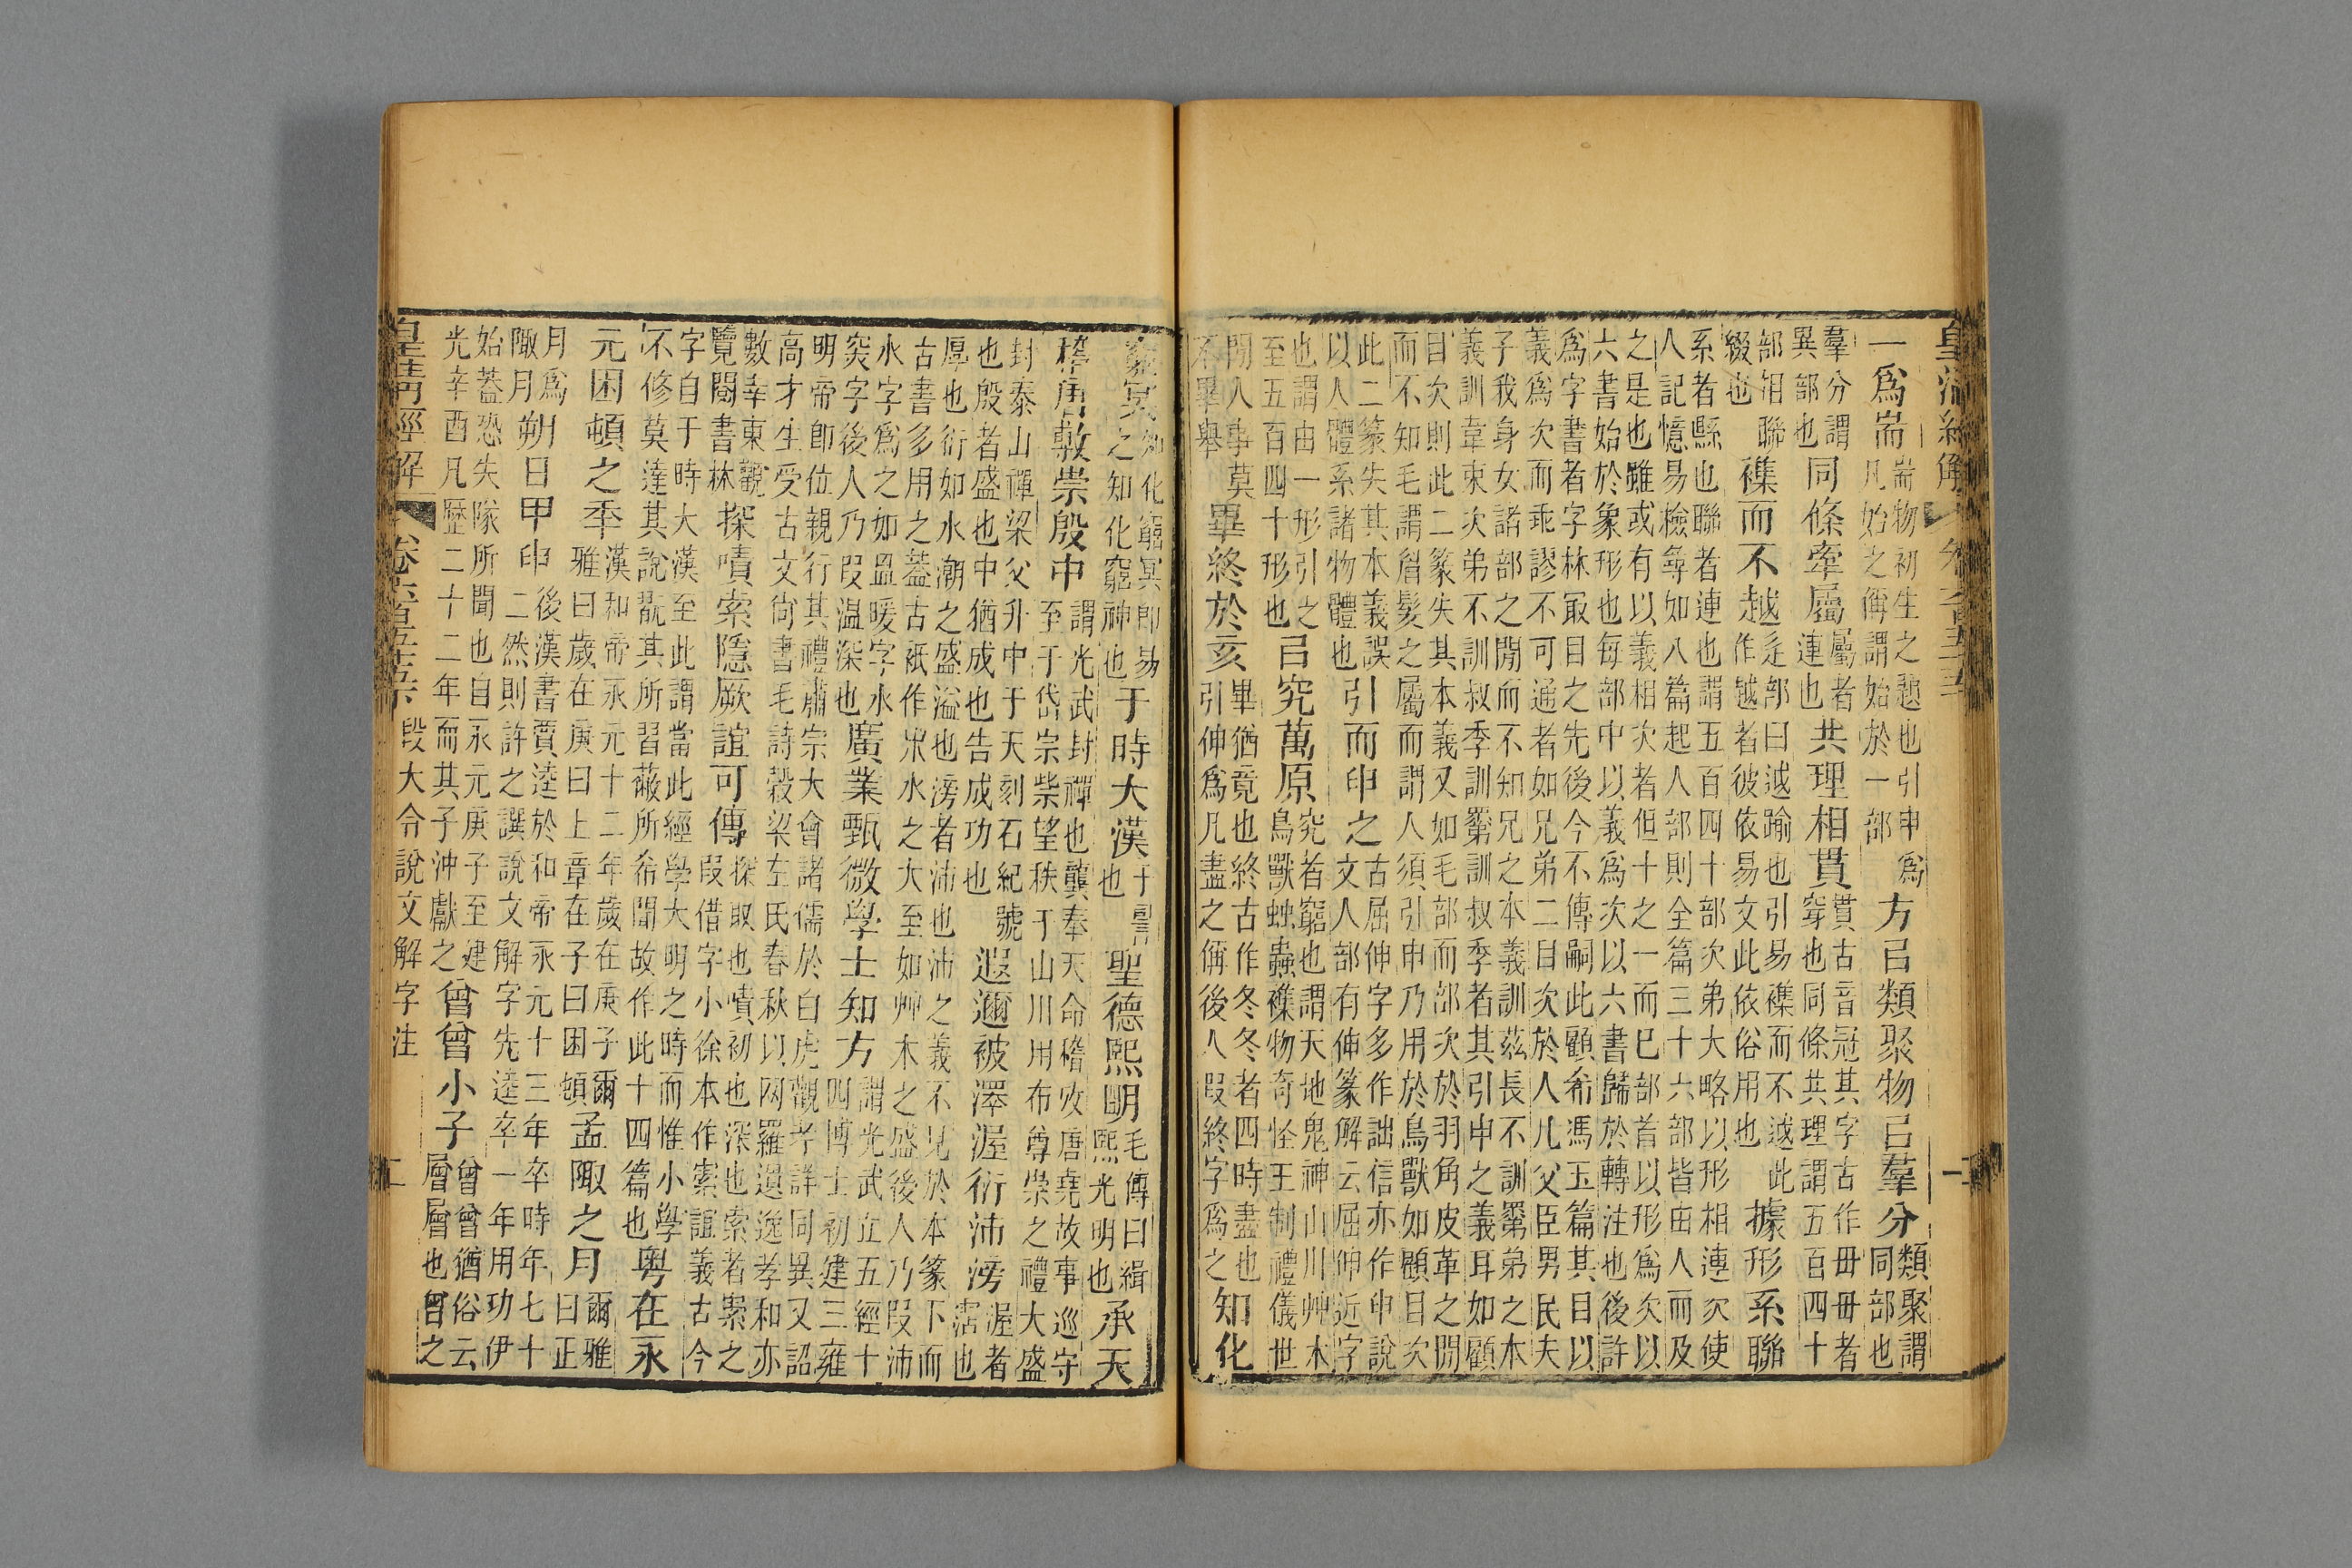 皇清經解 卷六百五十五 一
一爲耑
耑物初生之題也引申爲
凡始之偁謂始於一部
方㠯類聚物㠯羣分
類聚謂
同部也
羣分謂
異部也
同條牽屬
屬者
連也
共理相貫
貫古音冠其字古作毌毌者
穿也同條共理謂五百四十
部相聯
綴也
襍而不越
辵部曰𨒋踰也引易襍而不𨒋此
作越者彼依易文此依俗用也
據形系聯
系者縣也聯者連也謂五百四十部次弟大略以形相連次使
人記憶易檢尋如八篇起人部則全篇三十六部皆由人而及
之是也雖或有以義相次者但十之一而巳部首以形爲次以
六書始於象形也每部中以義爲次以六書歸於轉注也後許
爲字書者字林㝡目之先後今不傳嗣此顧希馮玉篇其目以
義爲次而乖謬不可通者如兄弟二目次於人儿父臣男民夫
子我身女諸部之閒而不知兄之本義訓茲長不訓罤弟之本
義訓韋束次弟不訓叔季訓罤訓叔季者其引申之義耳如顧
目次則此二篆失其本義又如毛部而部次於羽角皮革之閒
而不知毛謂眉髮之屬而謂人須引申乃用於鳥獸如顧目次
此二篆失其本義誤
以人體系諸物體也
引而申之
古屈伸字多作詘信亦作申說
文人部有伸篆解云屈伸近字
也謂由一形引之
至五百四十形也
㠯究萬原
究者窮也謂天地鬼神山川艸木
鳥獸䖵蟲襍物奇怪王制禮儀世
閒人事莫
不畢舉
畢終於亥
畢猶竟也終古作冬冬者四時盡也
引伸爲凡盡之偁後人叚終字爲之
知化
窮冥
知化窮冥即易
之知化窮神也
于時大漢
于
也
聖德熙明
毛傳曰緝
熙光明也
承天
稽唐敷崇殷中
謂光武封禪也龔奉天命稽攷唐堯故事巡守
至于岱宗柴望秩于山川用布尊崇之禮大盛
封泰山禪梁父升中于天刻石紀號
也殷者盛也中猶成也告成功也
遐邇被澤渥衍沛滂
渥者
霑也
厚也衍如水潮之盛溢也滂者沛也沛之義不見於本篆下而
古書多用之蓋古祇作㞷水之大至如艸木之盛後人乃叚沛
水字爲之如昷暖字水
突字後人乃叚温深也
廣業甄微學士知方
謂光武立五經十
四博士初建三雍
明帝卽位親行其禮肅宗大會諸儒於白虎觀考詳同異又詔
高才生受古文尚書毛詩穀梁左氏春秋以网羅遺逸孝和亦
數幸東觀
覽閱書林
探嘖索隱厥誼可傳
探取也嘖初也深也索者𡩡之
叚借字小徐本作𡩡誼義古今
字自于時大漢至此謂當此經學大明之時而惟小學
不修莫達其說翫其所習蔽所希聞故作此十四篇也
粵在永
元困頓之年
漢和帝永元十二年歲在庚子爾
雅曰歲在庚曰上章在子曰困頓
孟陬之月
爾雅
曰正
月爲
陬月
朔日甲申
後漢書賈逵於和帝永元十三年卒時年七十
二然則許之譔說文解字先逵卒一年用功伊
始蓋恐失隊所聞也自永元庚子至建
光辛酉凡歷二十二年而其子沖獻之
曾曾小子
曾曾猶俗云
層層也曾之
皇清經解 卷六百五十五下 段大令說文解字注 二